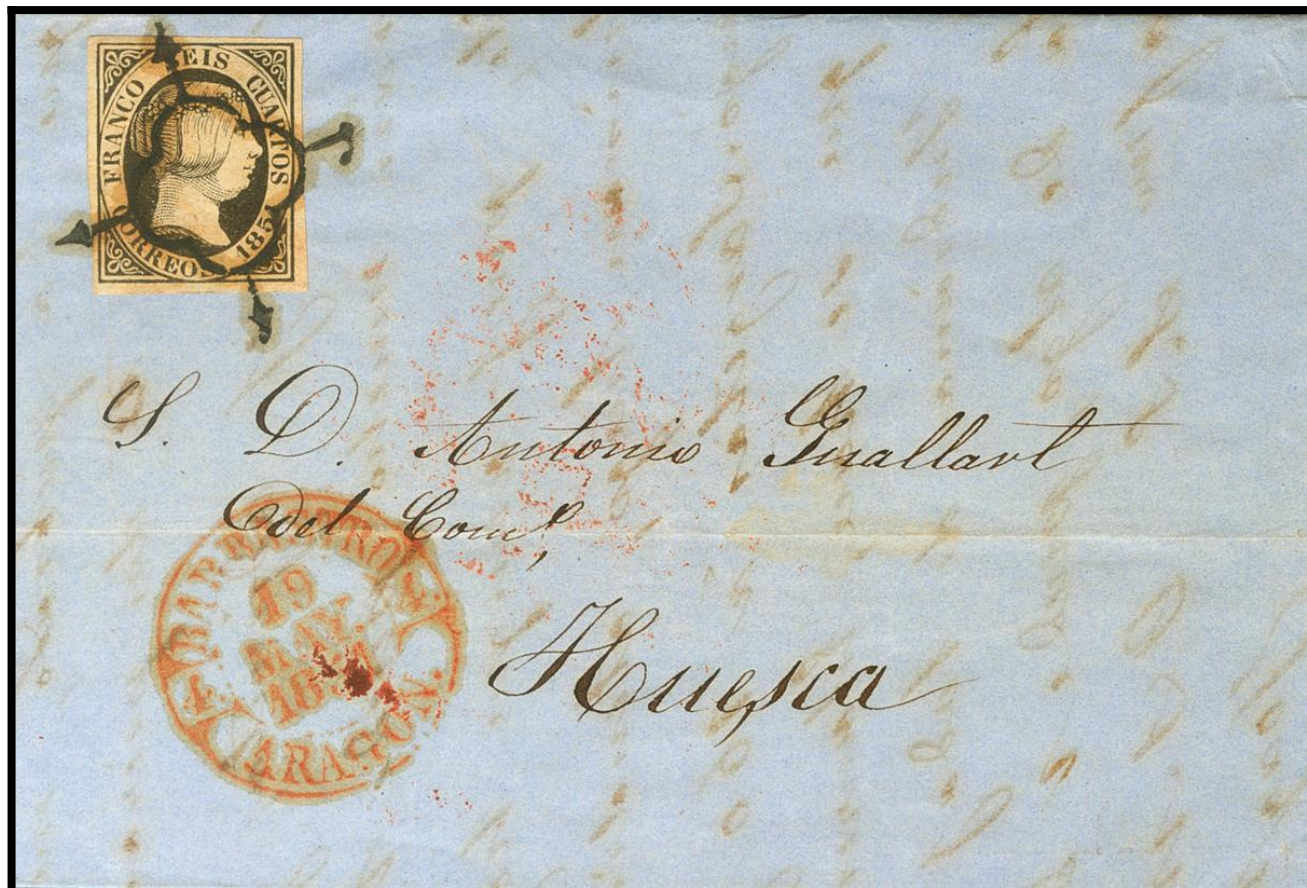 FRANCO SEIS CUARTOS
CORREOS 185
S. D. Antonio Guallart
del Com.º
Huesca
BARBASTRO
19
MAY.
18
ARAGON